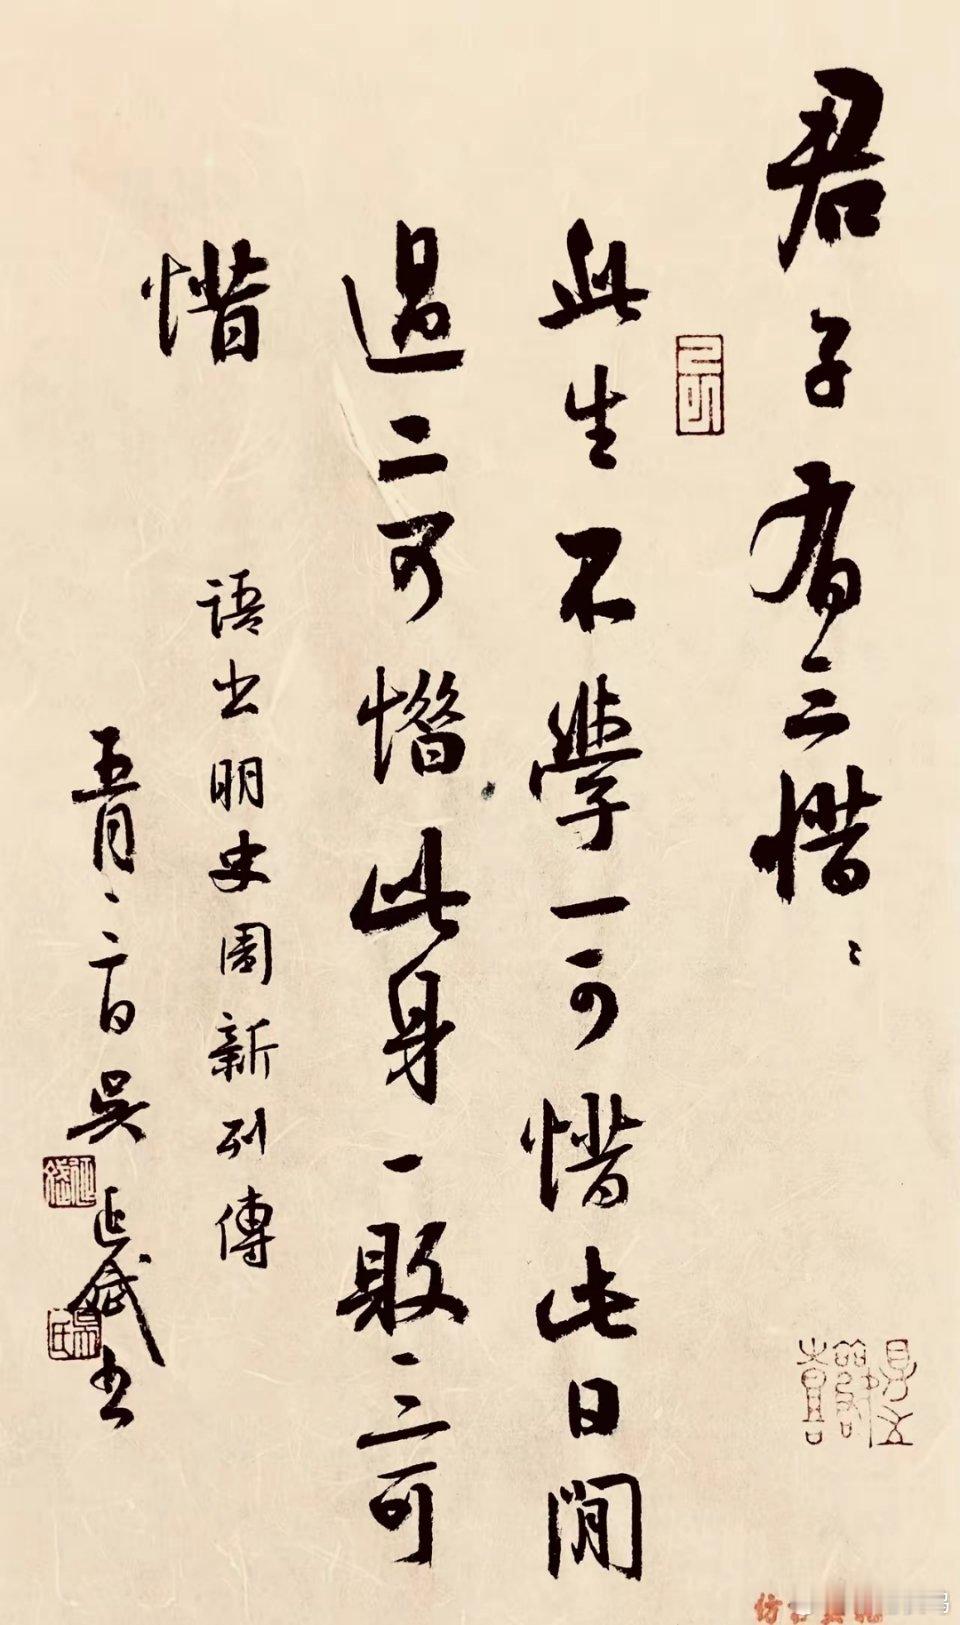 君子有三惜：
此生不學一可惜此日閒
過二可惜此身一敗三可
惜
語出明史周新列傳
五月 吳 书
仿古